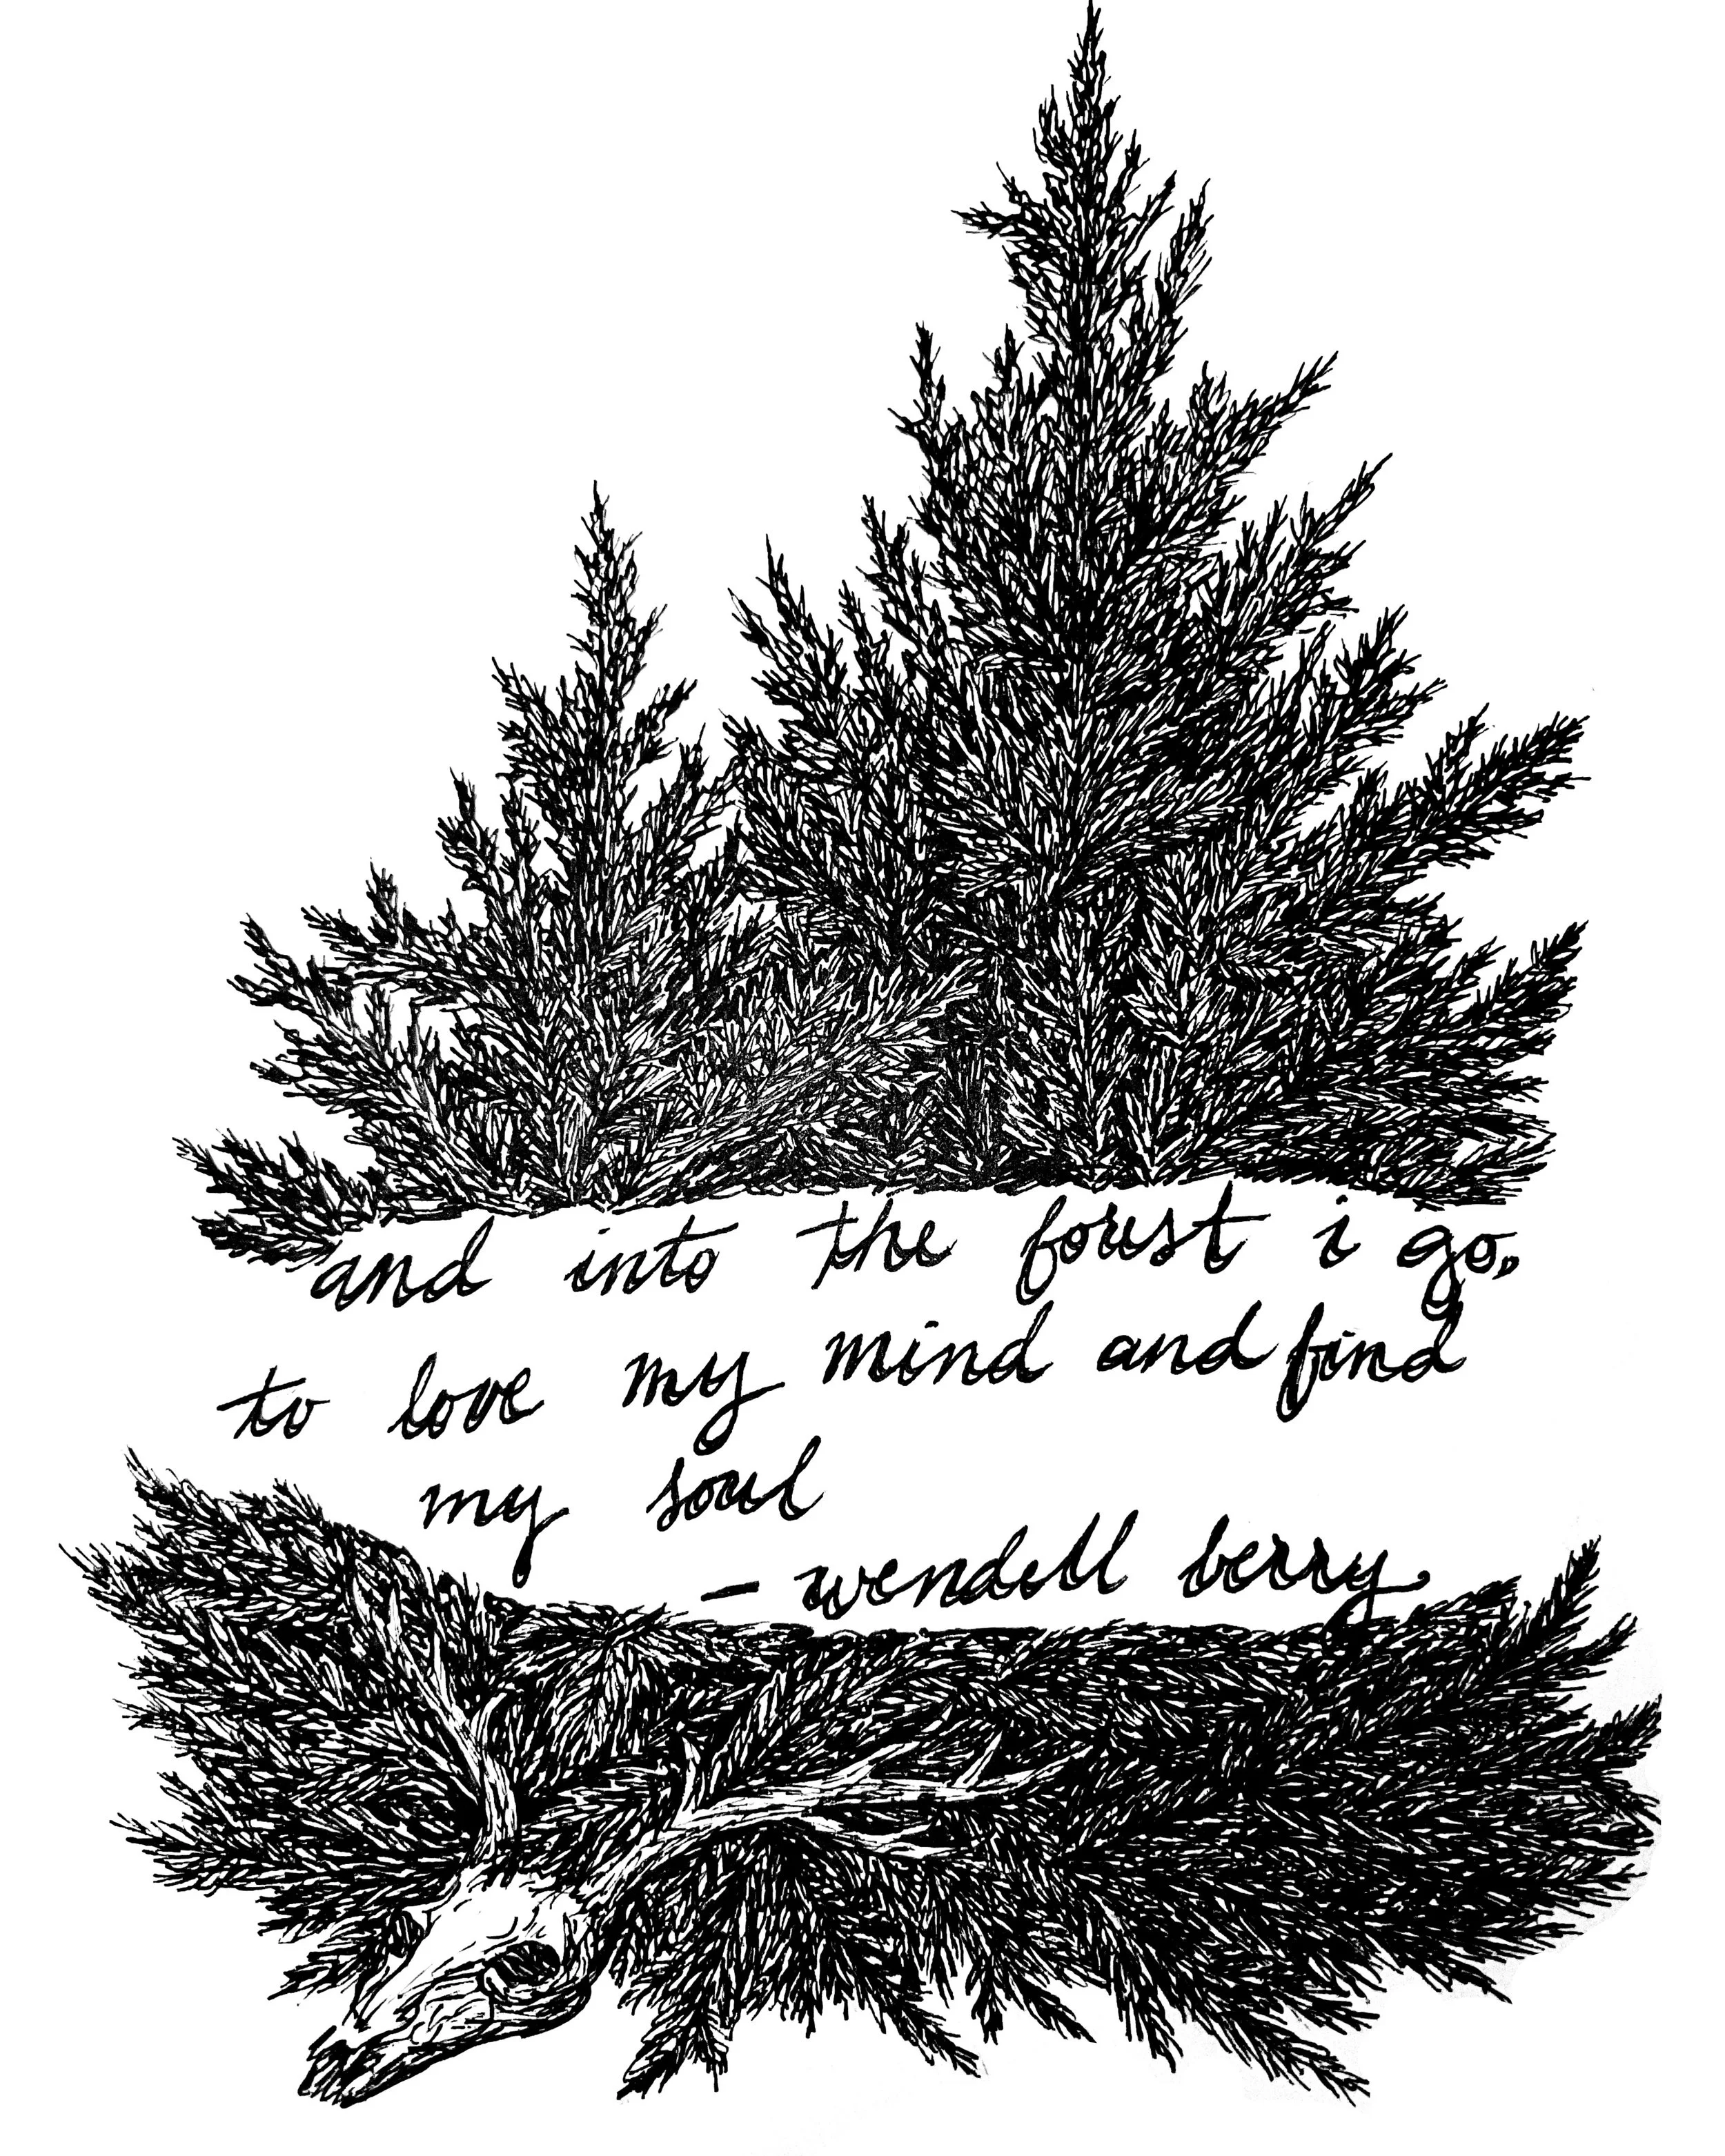 and into the forest i go,
to love my mind and find
my soul
- wendell berry